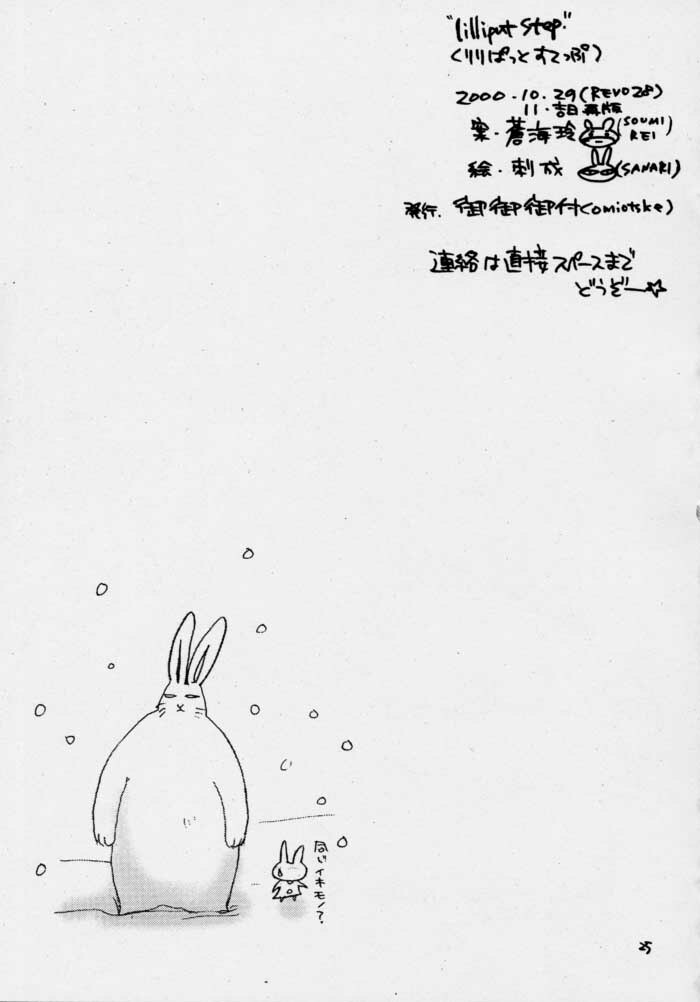 "lilliput step."
（りりぱっとすてっぷ）
2000.10.29(REVO28)
再版
案・蒼海玲 (SOUMI REI)
絵・刺成 (SANARI)
発行. 御御御付(omiotske)
連絡は直接スペースまで
どうぞー☆
同じイキモノ？
25